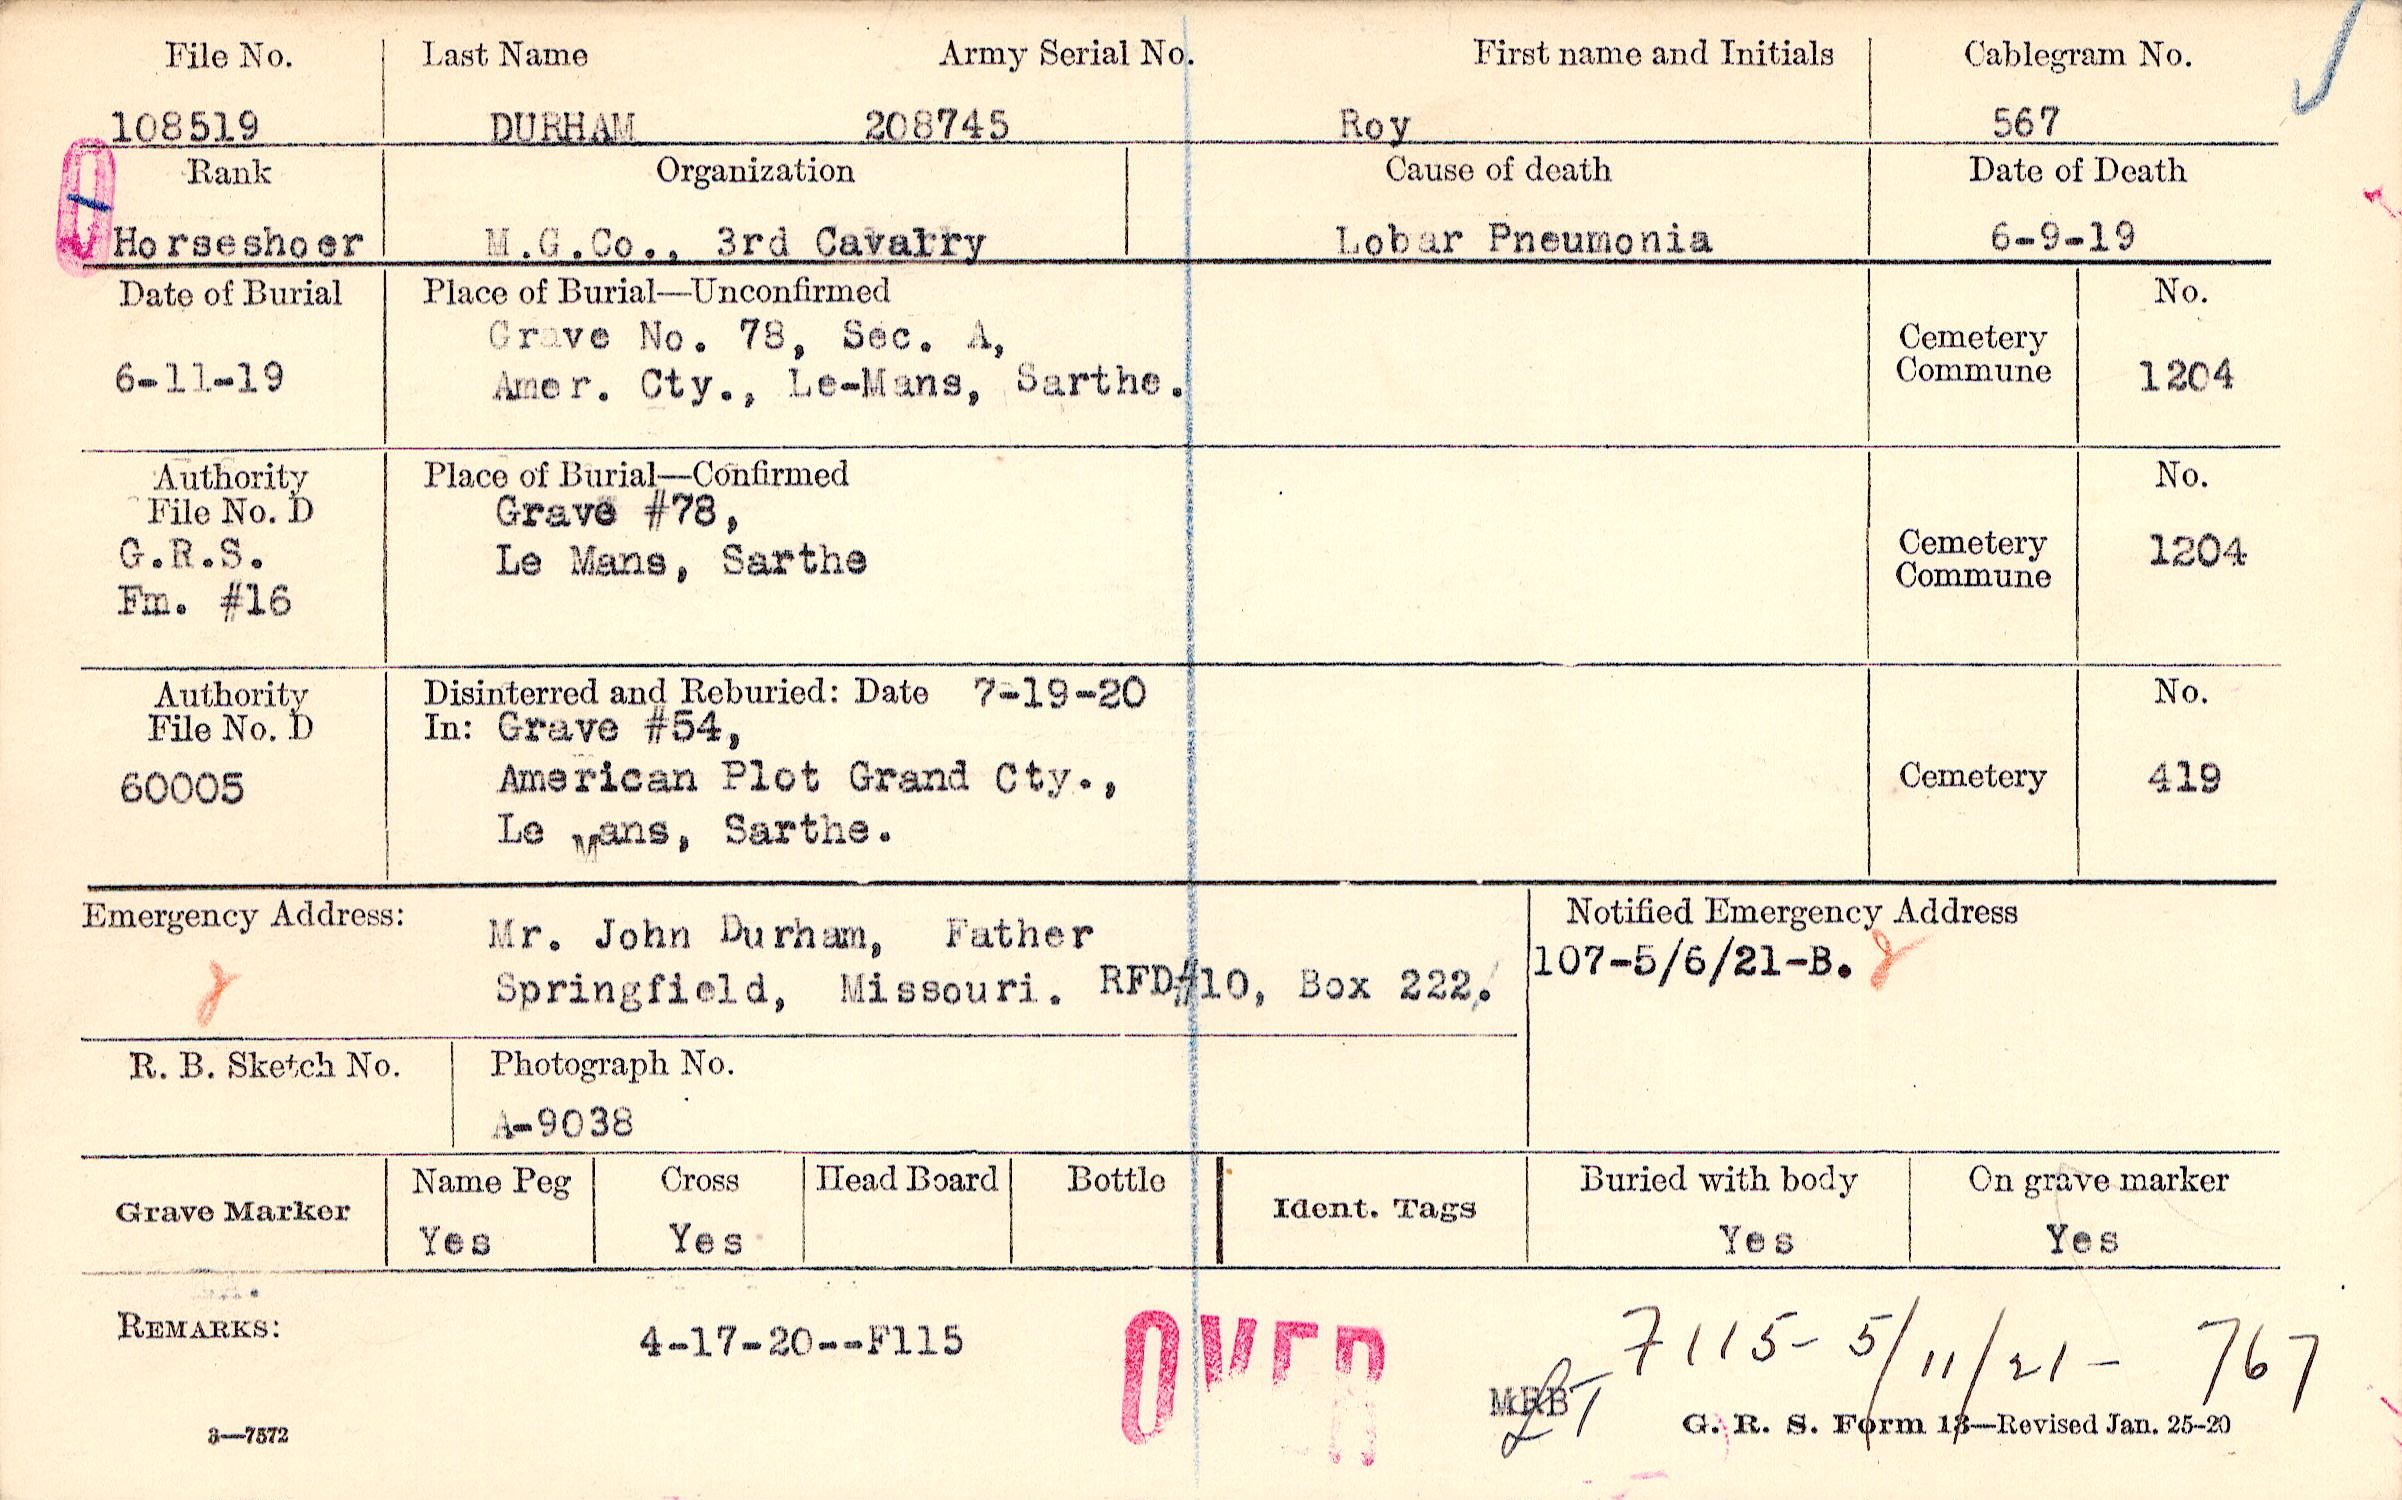 File No. Last Name Army Serial No. First name and Initials Cablegram No.
108519 DURHAM 208745 Roy 567
Rank Organization Cause of death Date of Death
Horseshoer M.G.Co., 3rd Cavalry Lobar Pneumonia 6-9-19
Date of Burial Place of Burial—Unconfirmed No.
Grave No. 78, Sec. A, Cemetery
6-11-19 Amer. Cty., Le-Mans, Sarthe. Commune 1204
Authority Place of Burial—Confirmed No.
File No. D Grave #78,
G.R.S. Le Mans, Sarthe Cemetery 1204
Fm. #16 Commune
Authority Disinterred and Reburied: Date 7-19-20 No.
File No. D In: Grave #54,
60005 American Plot Grand Cty., Cemetery 419
Le Mans, Sarthe.
Emergency Address: Mr. John Durham, Father Notified Emergency Address
Springfield, Missouri. RFD#10, Box 222. 107-5/6/21-B.
R. B. Sketch No. Photograph No.
A-9038
Grave Marker Name Peg Cross Head Board Bottle Ident. Tags Buried with body On grave marker
Yes Yes Yes Yes
REMARKS: 4-17-20--F115 OVER 7115- 5/11/21- 767
3—7572 G. R. S. Form 13—Revised Jan. 25-20